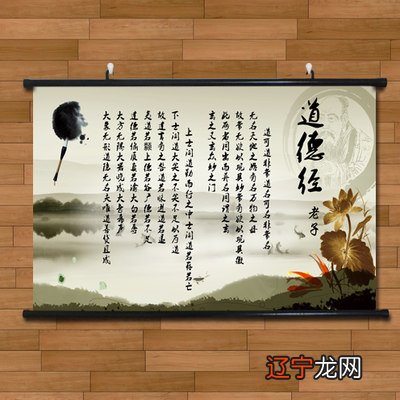 道德经
老子
道可道非常道名可名非常名
无名天地之始有名万物之母
故常无欲以观其妙常有欲以观其徼
此两者同出而异名同谓之玄
玄之又玄众妙之门
上士闻道勤而行之中士闻道若存若亡
下士闻道大笑之不笑不足以为道
故建言有之明道若昧进道若退
夷道若颣上德若谷广德若不足
建德若偷质真若渝大白若辱
大方无隅大器晚成大音希声
大象无形道隐无名夫唯道善贷且成
辽宁龙网